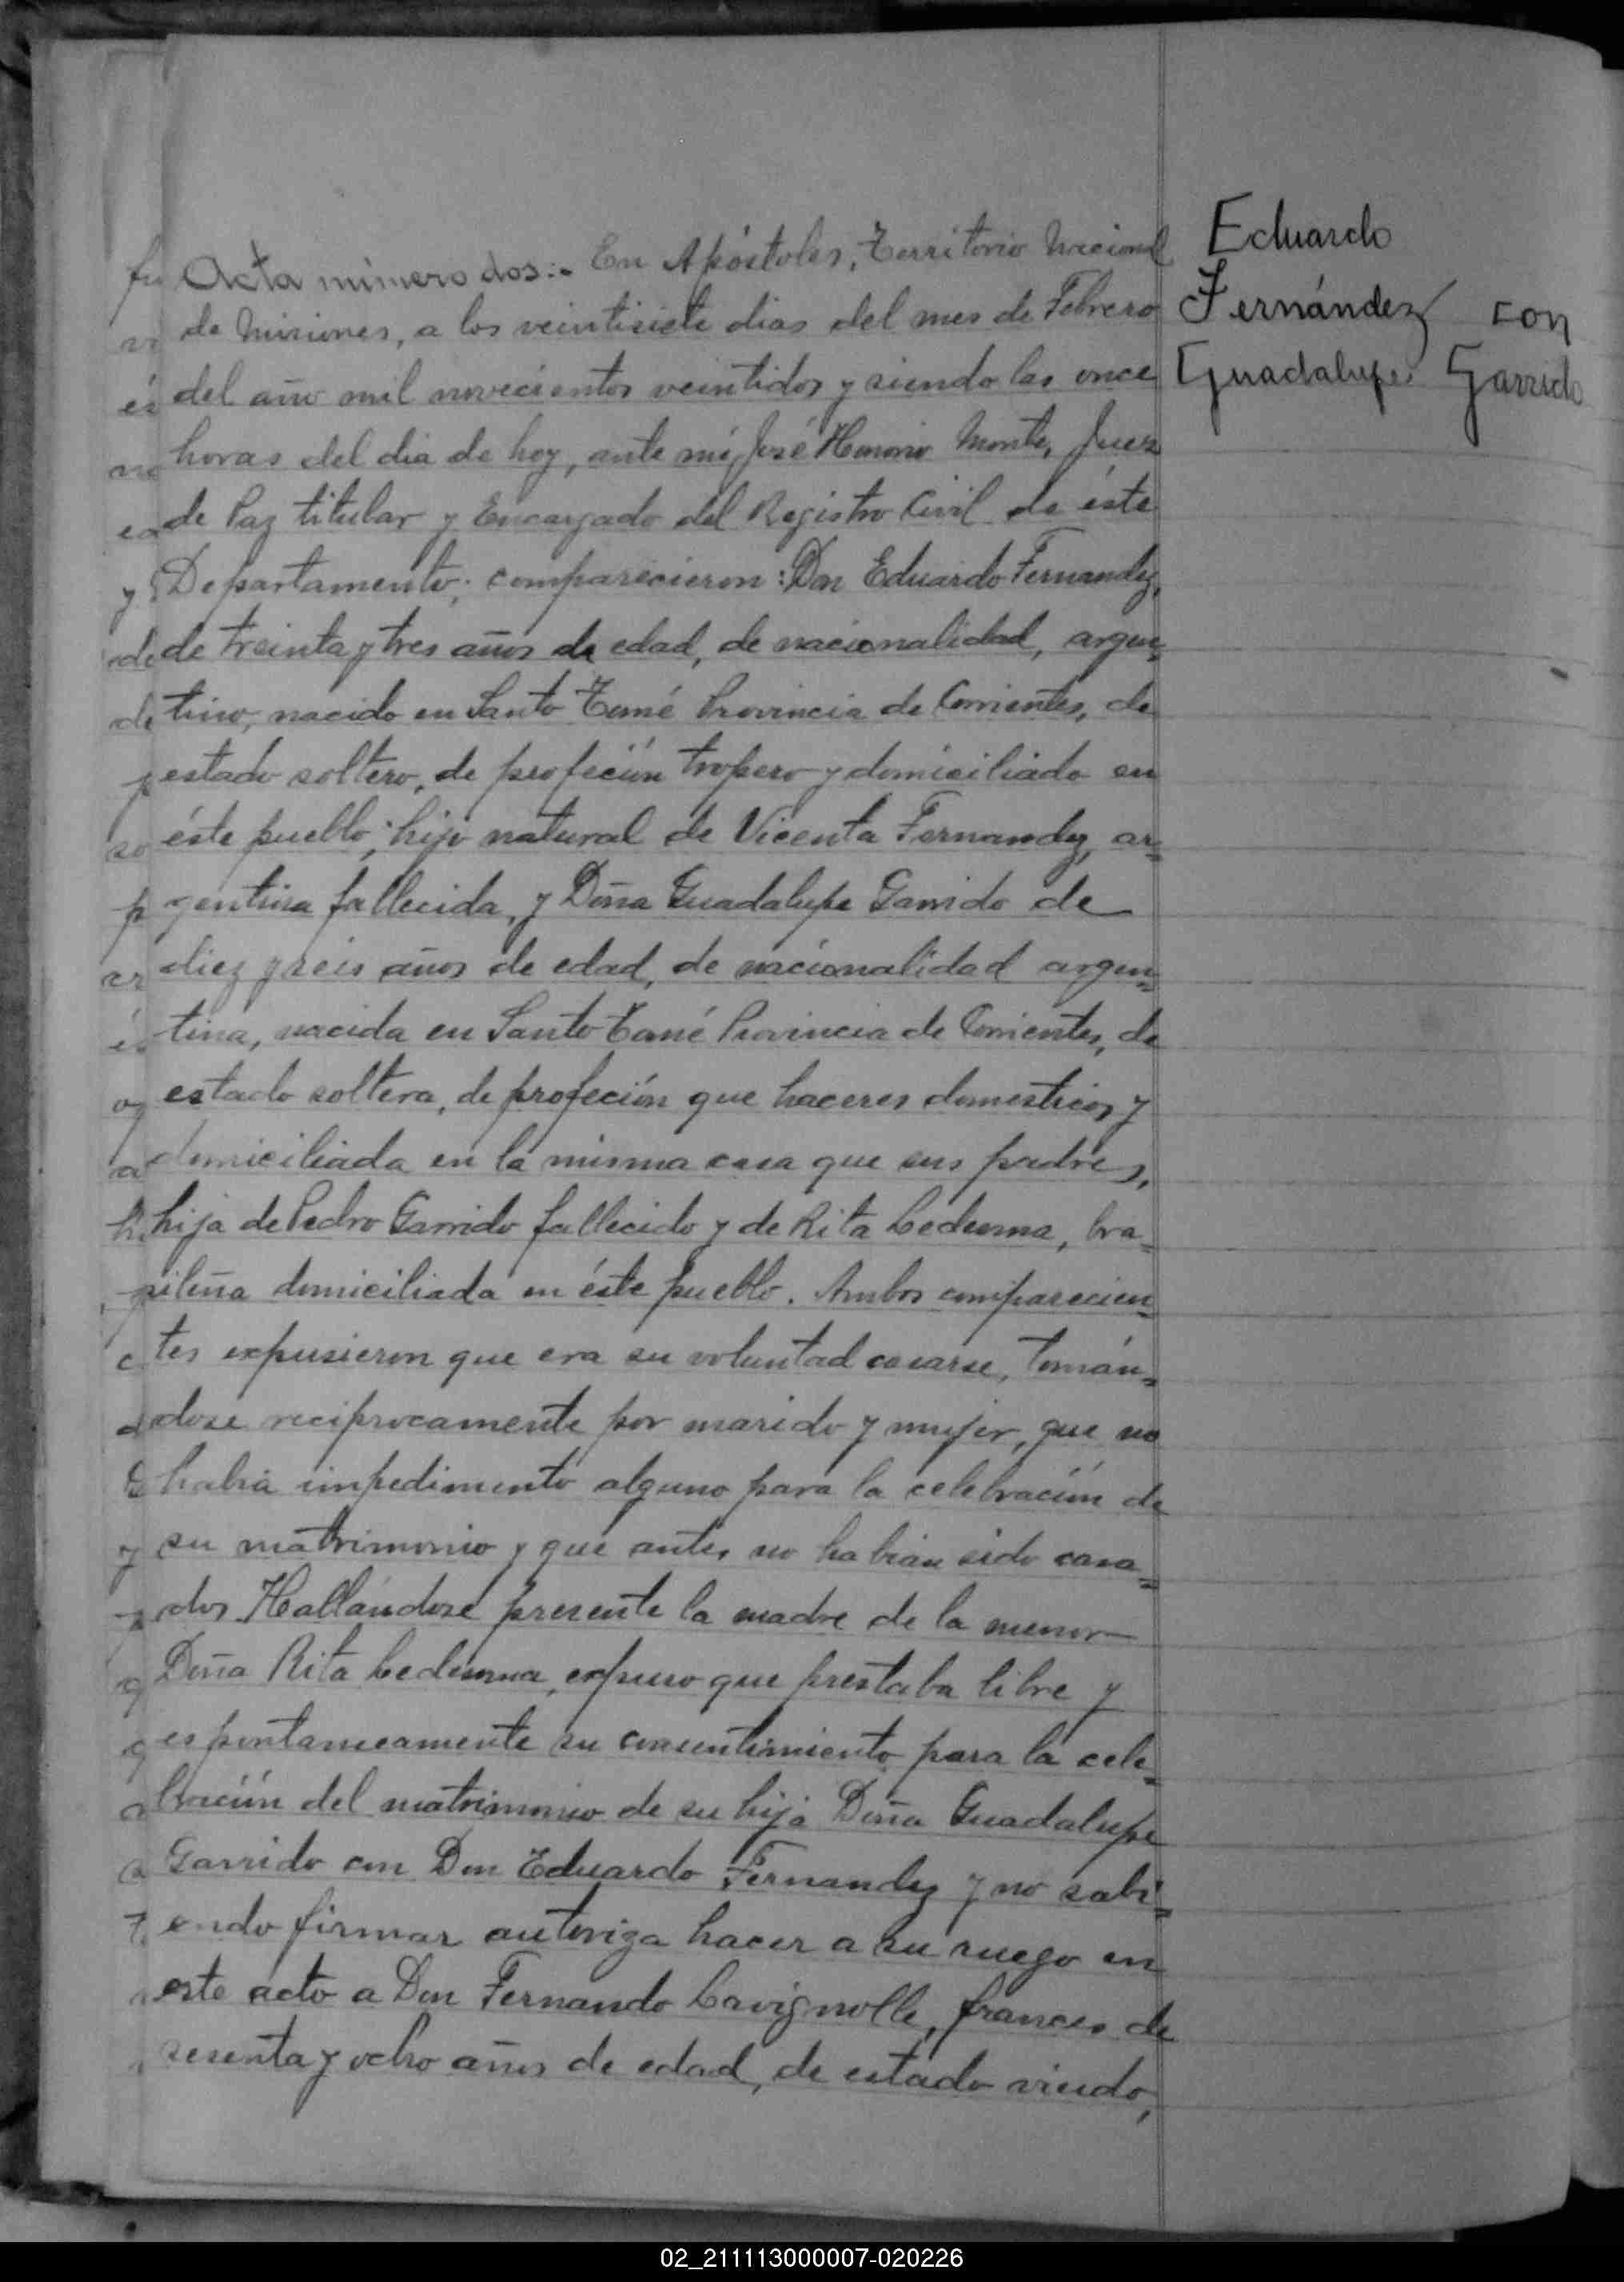 Eduardo
Fernández con
Guadalupe Garrido
Acta número dos:- En Apóstoles, Territorio Nacional
de Misiones, a los veintisiete dias del mes de Febrero
del año mil novecientos veintidos y siendo las once
horas del dia de hoy, ante mí, José Honorio Monte, Juez
de Paz titular y Encargado del Registro Civil de éste
Departamento; comparecieron: Don Eduardo Fernandez,
de treinta y tres años de edad, de nacionalidad, argen=
tino, nacido en Santo Tomé Provincia de Corrientes, de
estado soltero, de profeción tropero y domiciliado en
éste pueblo; hijo natural de Vicenta Fernandez, ar=
gentina fallecida, y Doña Guadalupe Garrido de
diez y seis años de edad, de nacionalidad argen=
tina, nacida en Santo Tomé Provincia de Corrientes, de
estado soltera, de profeción que haceres domesticos y
domiciliada en la misma casa que sus padres,
hija de Pedro Garrido fallecido y de Rita Ledesma, bra=
sileña domiciliada en éste pueblo. Ambos comparecien=
tes expusieron que era su voluntad casarse, tomán=
dose reciprocamente por marido y mujer, que no
habia impedimento alguno para la celebración de
su matrimonio y que antes no habian sido casa=
dos. Hallándose presente la madre de la menor
Doña Rita Ledesma, expuso que prestaba libre y
espontaneamente su consentimiento para la cele=
bración del matrimonio de su hija Doña Guadalupe
Garrido con Don Eduardo Fernandez y no sabi=
endo firmar autoriza hacer a su ruego en
este acto a Don Fernando Lavignolle, frances de
sesenta y ocho años de edad, de estado viudo,
02_211113000007-020226